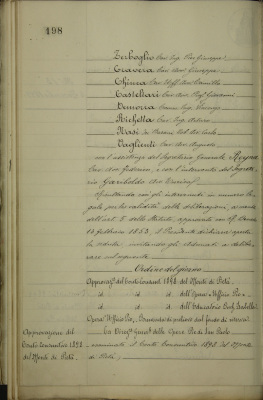 198
Zerboglio Cav. Ing. Pier Giuseppe
Traveria Cav. Avv. Giuseppe
Chiesa Cav. Uff. Avv. Camillo
Castellari Cav. Avv. Prof. Giovanni
Demorra Comm. Ing.
Richetta Cav. Ing. Arturo
Nasi
Vaglienti Cav. Avv. Augusto
coll'assistenza del Segretario Generale
Cav. Avv. Federico, e con l'intervento del Segreta-
rio Gariboldo Avv.
gli intervenuti in numero le-
gale per la validità delle deliberazioni, a senso
dell'art. delle Statuto, approvato con
13 febbraio 1853, il Presidente dichiara aperta
la seduta invitando gli adunati a delibe-
rare sul seguente
Ordine del giorno
Approvaz. del Conto Consunt. 1892 del Monte di Pietà.
id id id dell'Opera e Ufficio Pio.
id id id dell'Educatorio Duch. Isabella.
Opera e Ufficio Pio, Domanda di prelievo dal fondo di riserva.
Approvazione del
Conto Consuntivo 1892
del Monte di Pietà.
La Direz. Gener. delle Opere Pie di San Paolo
esaminato il Conto Consuntivo 1892 del Monte
di Pietà,